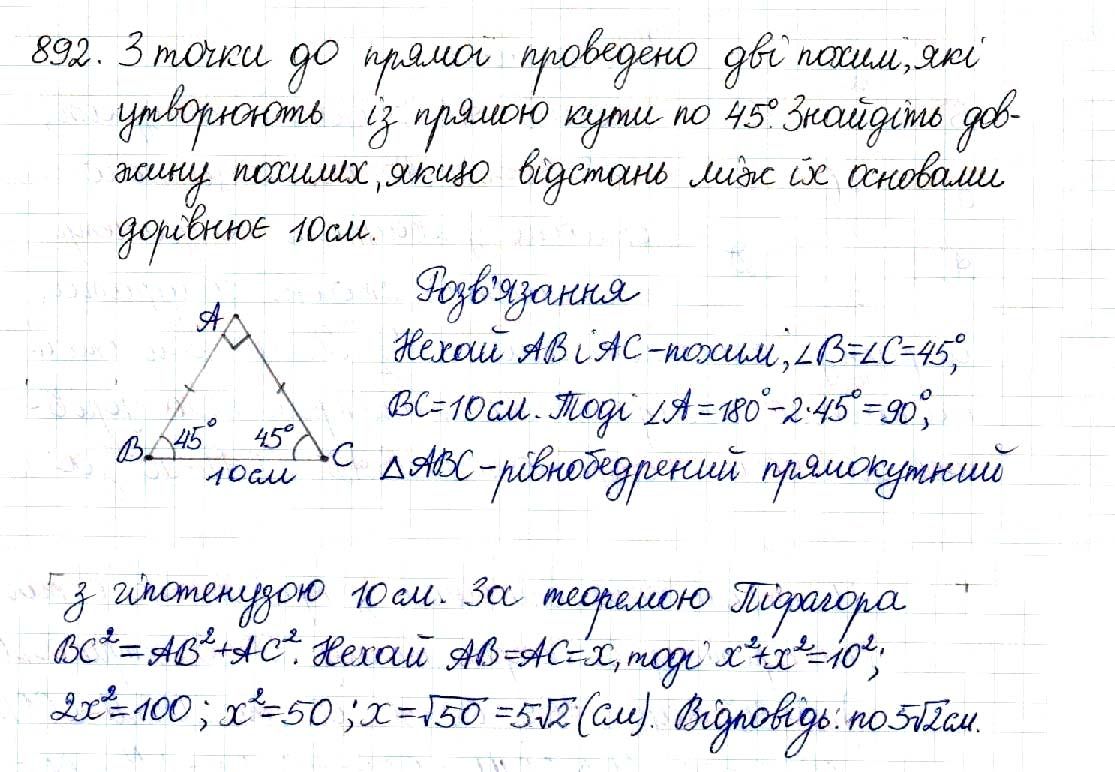 892. З точки до прямої проведено дві похилі, які
утворюють із прямою кути по 45°. Знайдіть дов-
жину похилих, якщо відстань між їх основами
дорівнює 10 см.
Розв'язання
A
Нехай AB і AC - похилі, ∠B=∠C=45°,
BC=10 см. Тоді ∠A=180°-2·45°=90°,
B 45° 45° C
10 см
△ABC - рівнобедрений прямокутний
з гіпотенузою 10 см. За теоремою Піфагора
BC²=AB²+AC². Нехай AB=AC=x, тоді x²+x²=10²;
2x²=100; x²=50; x=√50=5√2 (см). Відповідь: по 5√2 см.